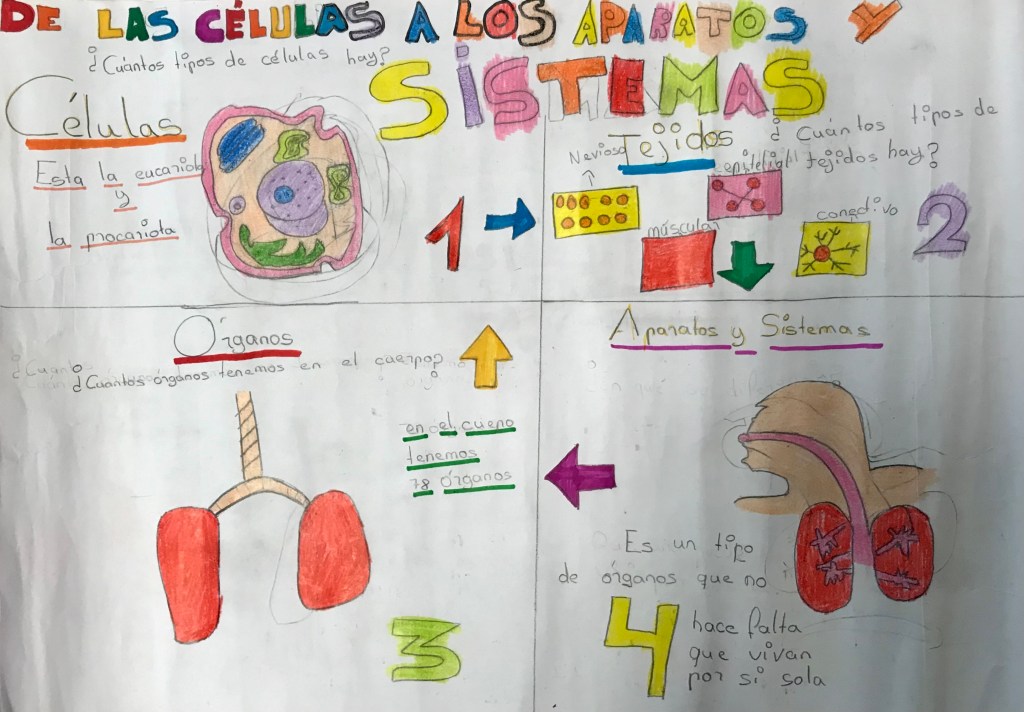 DE LAS CÉLULAS A LOS APARATOS Y
SISTEMAS
¿Cuántos tipos de células hay?
Células
Esta la eucariota
y
la procariota
1
Tejidos
¿Cuántos tipos de
tejidos hay?
Nevioso
epitelial
múscular
conectivo
2
Órganos
¿Cuántos órganos tenemos en el cuerpo?
en el cuerpo
tenemos
78 órganos
3
Aparatos y Sistemas
Es un tipo
de órganos que no
hace falta
que vivan
por si sola
4